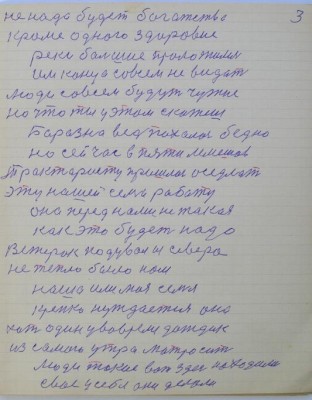 3
не надо будет богатство
кроме одного здоровие
реки большие проложили
им конца совсем не видат
люди совсем будут чужие
но что ты у этом скажиш
Баразна вед пахалас бедно
но сейчас в пяти лемешов
трактаристу пришлос оседлат
эту нашей семь работу
она перед нами не такая
как это будет надо
Ветерок подувал ы севера
не тепло было нам
наша или моя семя
крепко нуждается она
хот один у во время дождык
из самого утра моросит
люди такие вот здес находили
свае у себя они делали